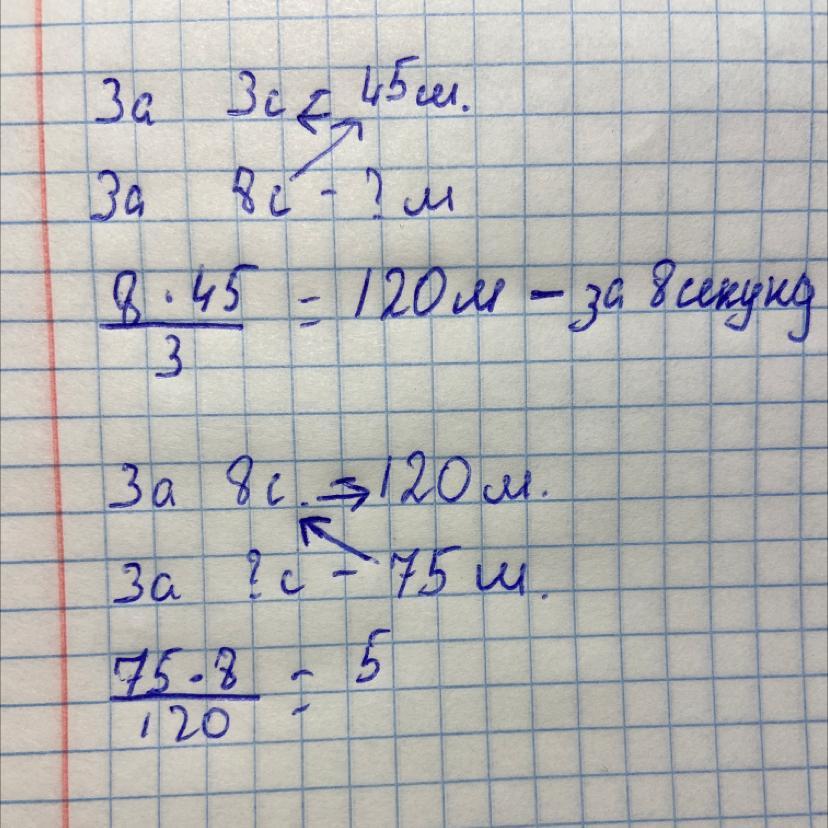 За 3с ← 45м.
За 8с - ? м
8 · 45 / 3 = 120м - за 8 секунд
За 8с. → 120 м.
За ?с - 75 м.
75 · 8 / 120 = 5